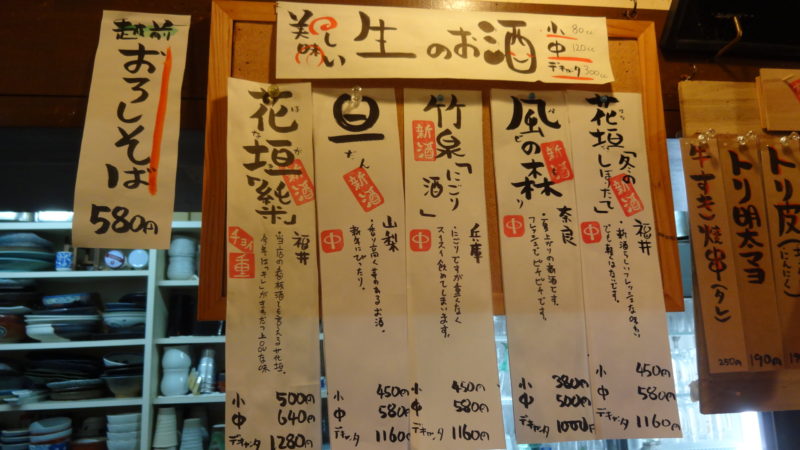 越前
おろしそば
580円
美味しい 生のお酒
小 80cc
中 120cc
デキャンタ 300cc
花垣「純米」
はながき
新酒
チョイ重
福井
小 500円
中 640円
デキャンタ 1280円
旦
だん
新酒
中
山梨
香り高く
新年にぴったり。
小 450円
中 580円
デキャンタ 1160円
竹泉「にごり酒」
新酒
中
兵庫
にごりですが重たくなく
スイスイ飲めてしまいます。
小 450円
中 580円
デキャンタ 1160円
風の森
新酒
中
奈良
フレッシュでピチピチです。
小 380円
中 500円
デキャンタ 1000円
花垣「冬のしぼったて」
新酒
中
福井
新酒らしいフレッシュな味わい
でも軽くはないです。
小 450円
中 580円
デキャンタ 1160円
牛すき焼串(タレ)
250円
トリ明太マヨ
190円
トリ皮(にんにく)